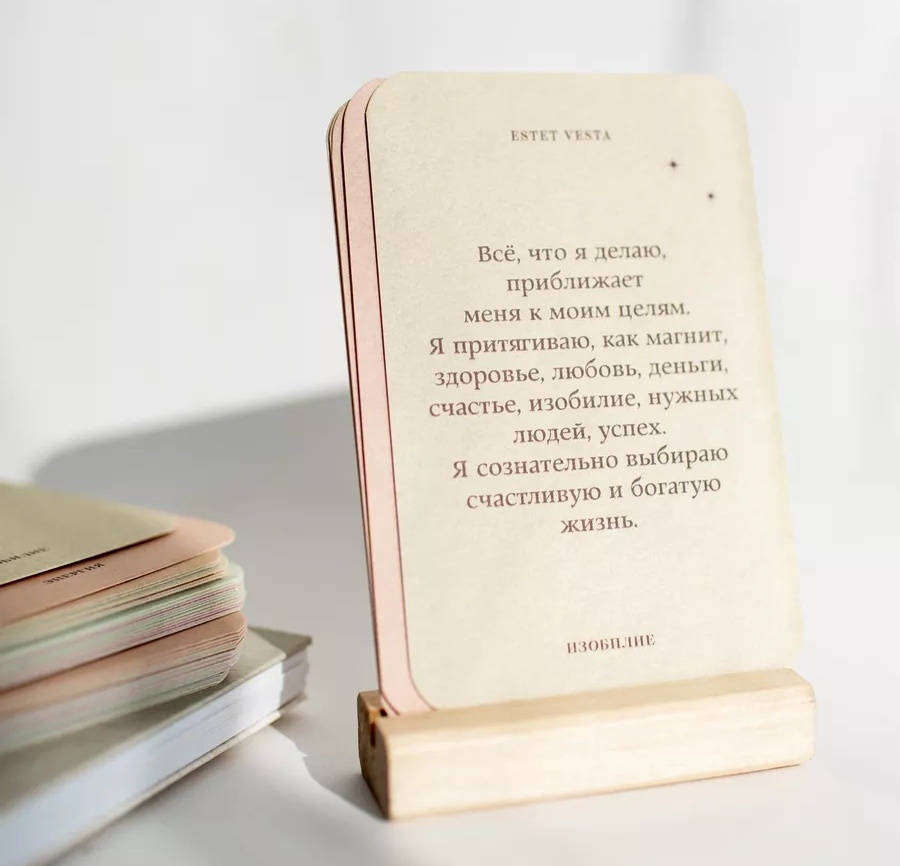 ESTET VESTA
Всё, что я делаю,
приближает
меня к моим целям.
Я притягиваю, как магнит,
здоровье, любовь, деньги,
счастье, изобилие, нужных
людей, успех.
Я сознательно выбираю
счастливую и богатую
жизнь.
ИЗОБИЛИЕ
ЭНЕРГИЯ